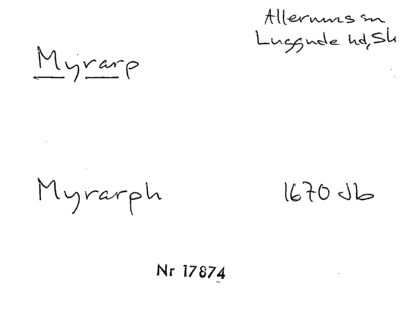 Allerums sn
Luggude hd, Sk
Myrarp
Myrarph 1670 Jb
Nr 17874